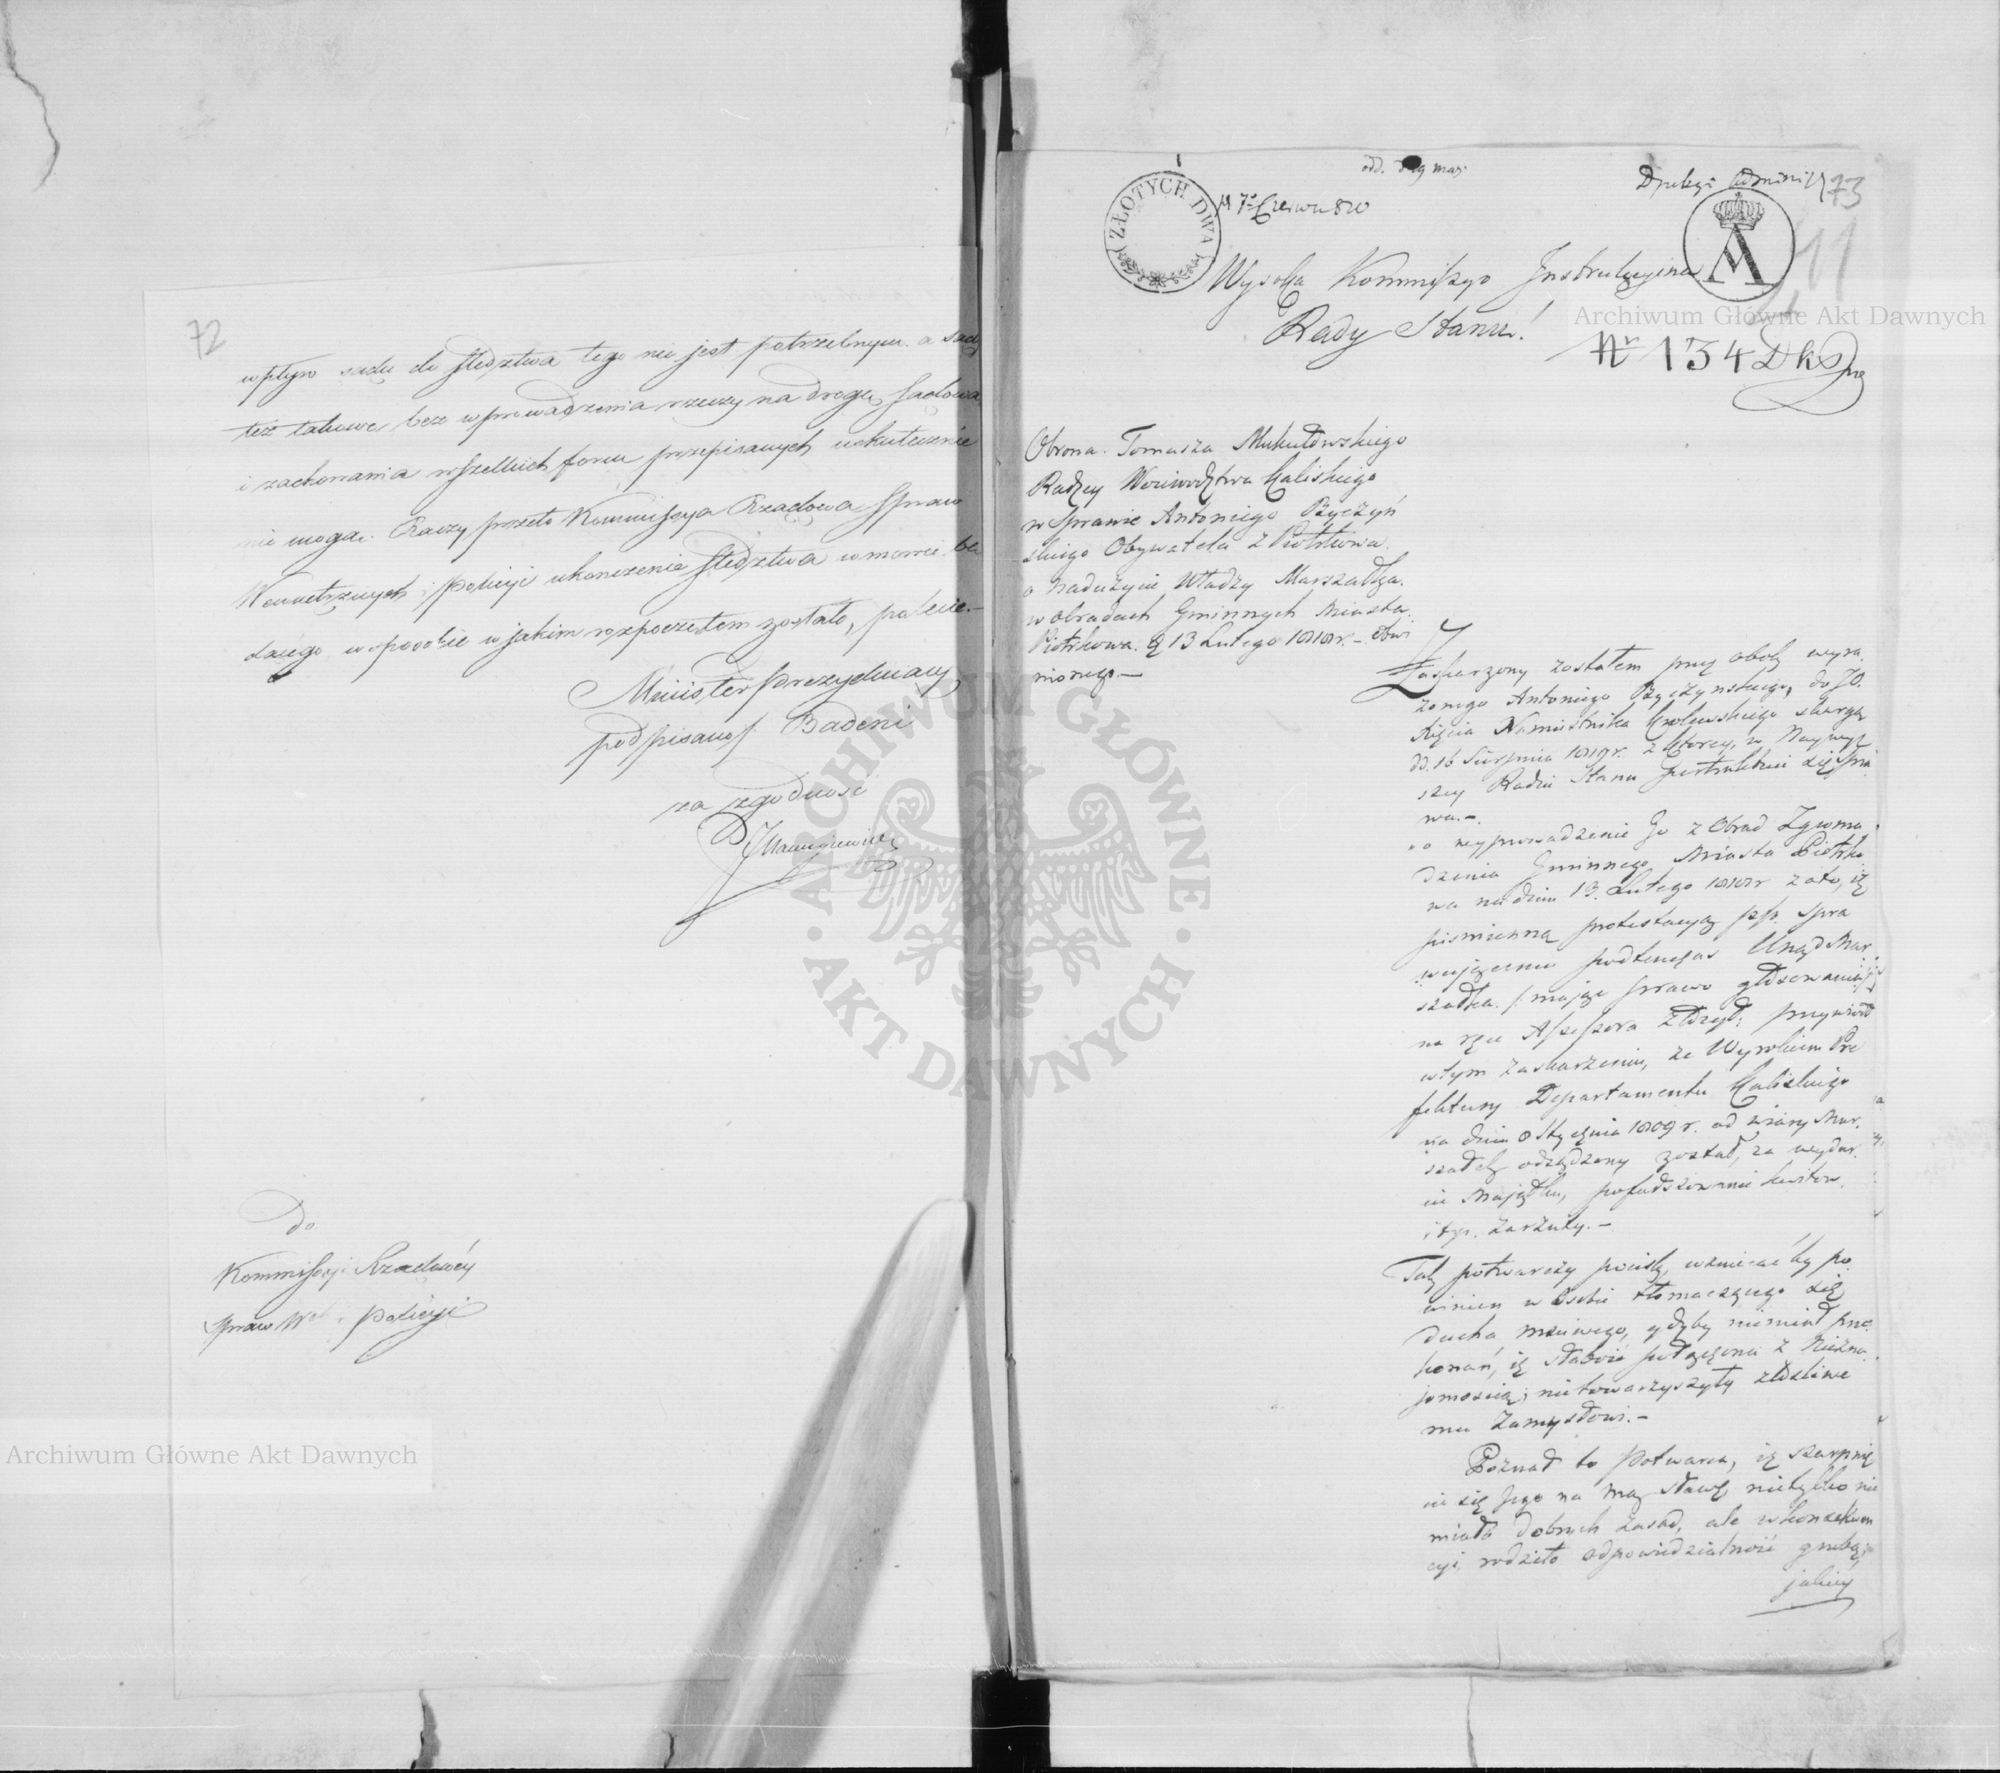 72
wpływ sądu do śledztwa tego nie jest potrzebnym a sądy
też takowe, bez wprowadzenia rzeczy na drogę sądową
i zachowania wszelkich form przepisanych uskutecznić
nie mogą. Raczy przeto Kommissya Rządowa Spraw
Wewnętrznych i Policyi ukończenie śledztwa w mowie bę
dącego w sposobie w jakim rozpoczętem zostało, polecić.—
Minister Prezydujący
podpisano/ Badeni
za zgodność
Do
Kommissyi Rządowéy
Spraw We i Policyi
Archiwum Główne Akt Dawnych
ARCHIWUM GŁÓWNE
AKT DAWNYCH
73
11
ZŁOTYCH DWA
7 Czerwca 820
Wysoka Kommissyo Instrukcyina
Rady Stanu!
Archiwum Główne Akt Dawnych
Nr 134 DKS
Obrona Tomasza Mukułowskiego
Radzcy Woiewództwa Kaliskiego
w Sprawie Antoniego Byczyń
skiego Obywatela z Piotrkowa
o nadużycie Władzy Marszałka
w obradach Gminnych Miasta
Piotrkowa d 13 Lutego 1818 r. — obwi
nionego.—
Zaskarżony zostałem przez obok wyra
żonego Antoniego Byczyńskiego, do JO.
Xięcia Namiestnika Królewskiego skargą
dd. 16 Sierpnia 1819 r. z którey, w Naywyż
szey Radzie Stanu pertraktuie się Spra
wa.—
o wyprowadzenie Go z Obrad Zgroma
dzenia Gminnego Miasta Piotrko
wa na dniu 13. Lutego 1818 r za to, iż
piśmienną protestacyą pko. Spra
wuiącemu podtenczas Urząd Mar
szałka /: maiąc prawo głosowania :/
na ręce Assessora złożył: przywiódł
w tym zaskarżeniu, że Wyrokiem Pre
fektury Departamentu Kaliskiego
na dniu 8 Stycznia 1809 r. od wiary Mar
szałek odsądzony został, za wydar
cie Maiątku, pofałszowanie kwitów,
i tp. zarzuty.—
Tak potwarczy pocisk, wzniecać by po
winien w Osobie tłomaczącego się
ducha mściwego, gdyby niemiał prze
konań, iż słabość połączona z Niezna
jomością, nietowarzyszyły złośliwe
mu Zamysłowi.—
Poznał to Potwarca, iż szarpnię
cie się Jego na mą sławę nietylko nie
miało dobrych zasad, ale w konsekwen
cyi, rodziło odpowiedzialność grubą,
jakiey